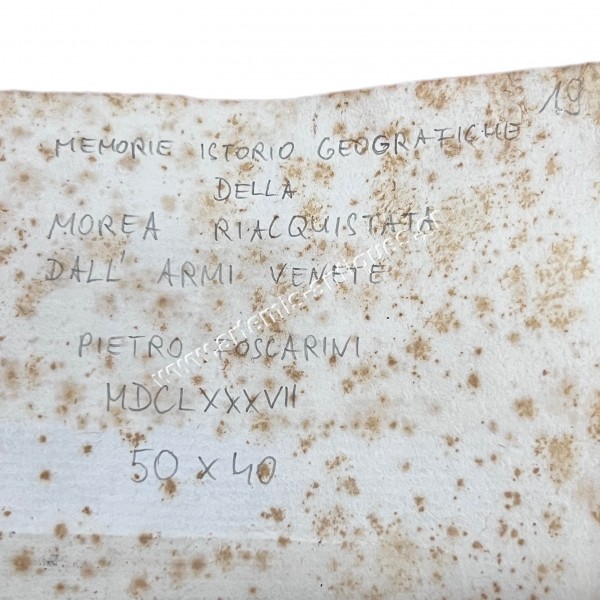 19
MEMORIE ISTORIO GEOGRAFICHE
DELLA
MOREA RIACQUISTATA
DALL' ARMI VENETE
PIETRO FOSCARINI
MDCLXXXVII
50 x 40